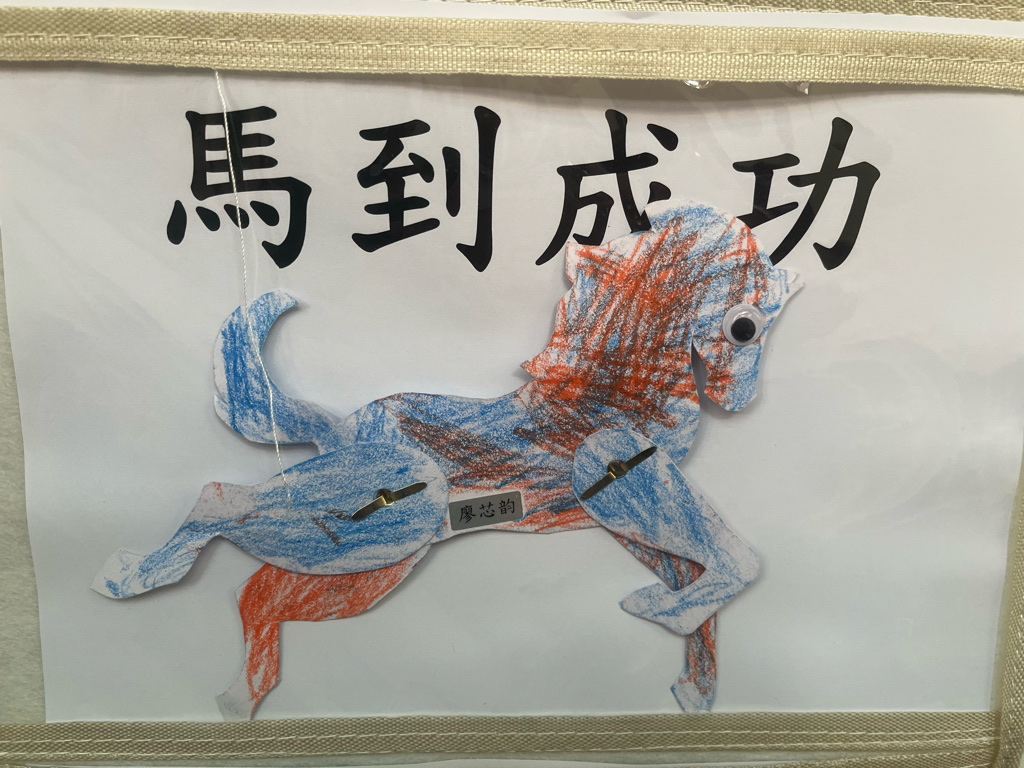 馬到成功
廖芯韵